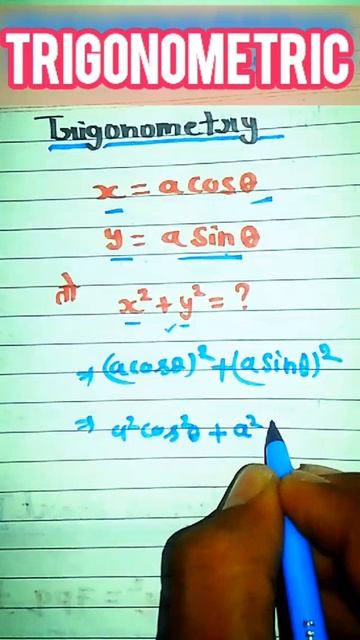 TRIGONOMETRIC
Trigonometry
x = a cosθ
y = a sinθ
तो x² + y² = ?
⇒ (a cosθ)² + (a sinθ)²
⇒ a² cos²θ + a²